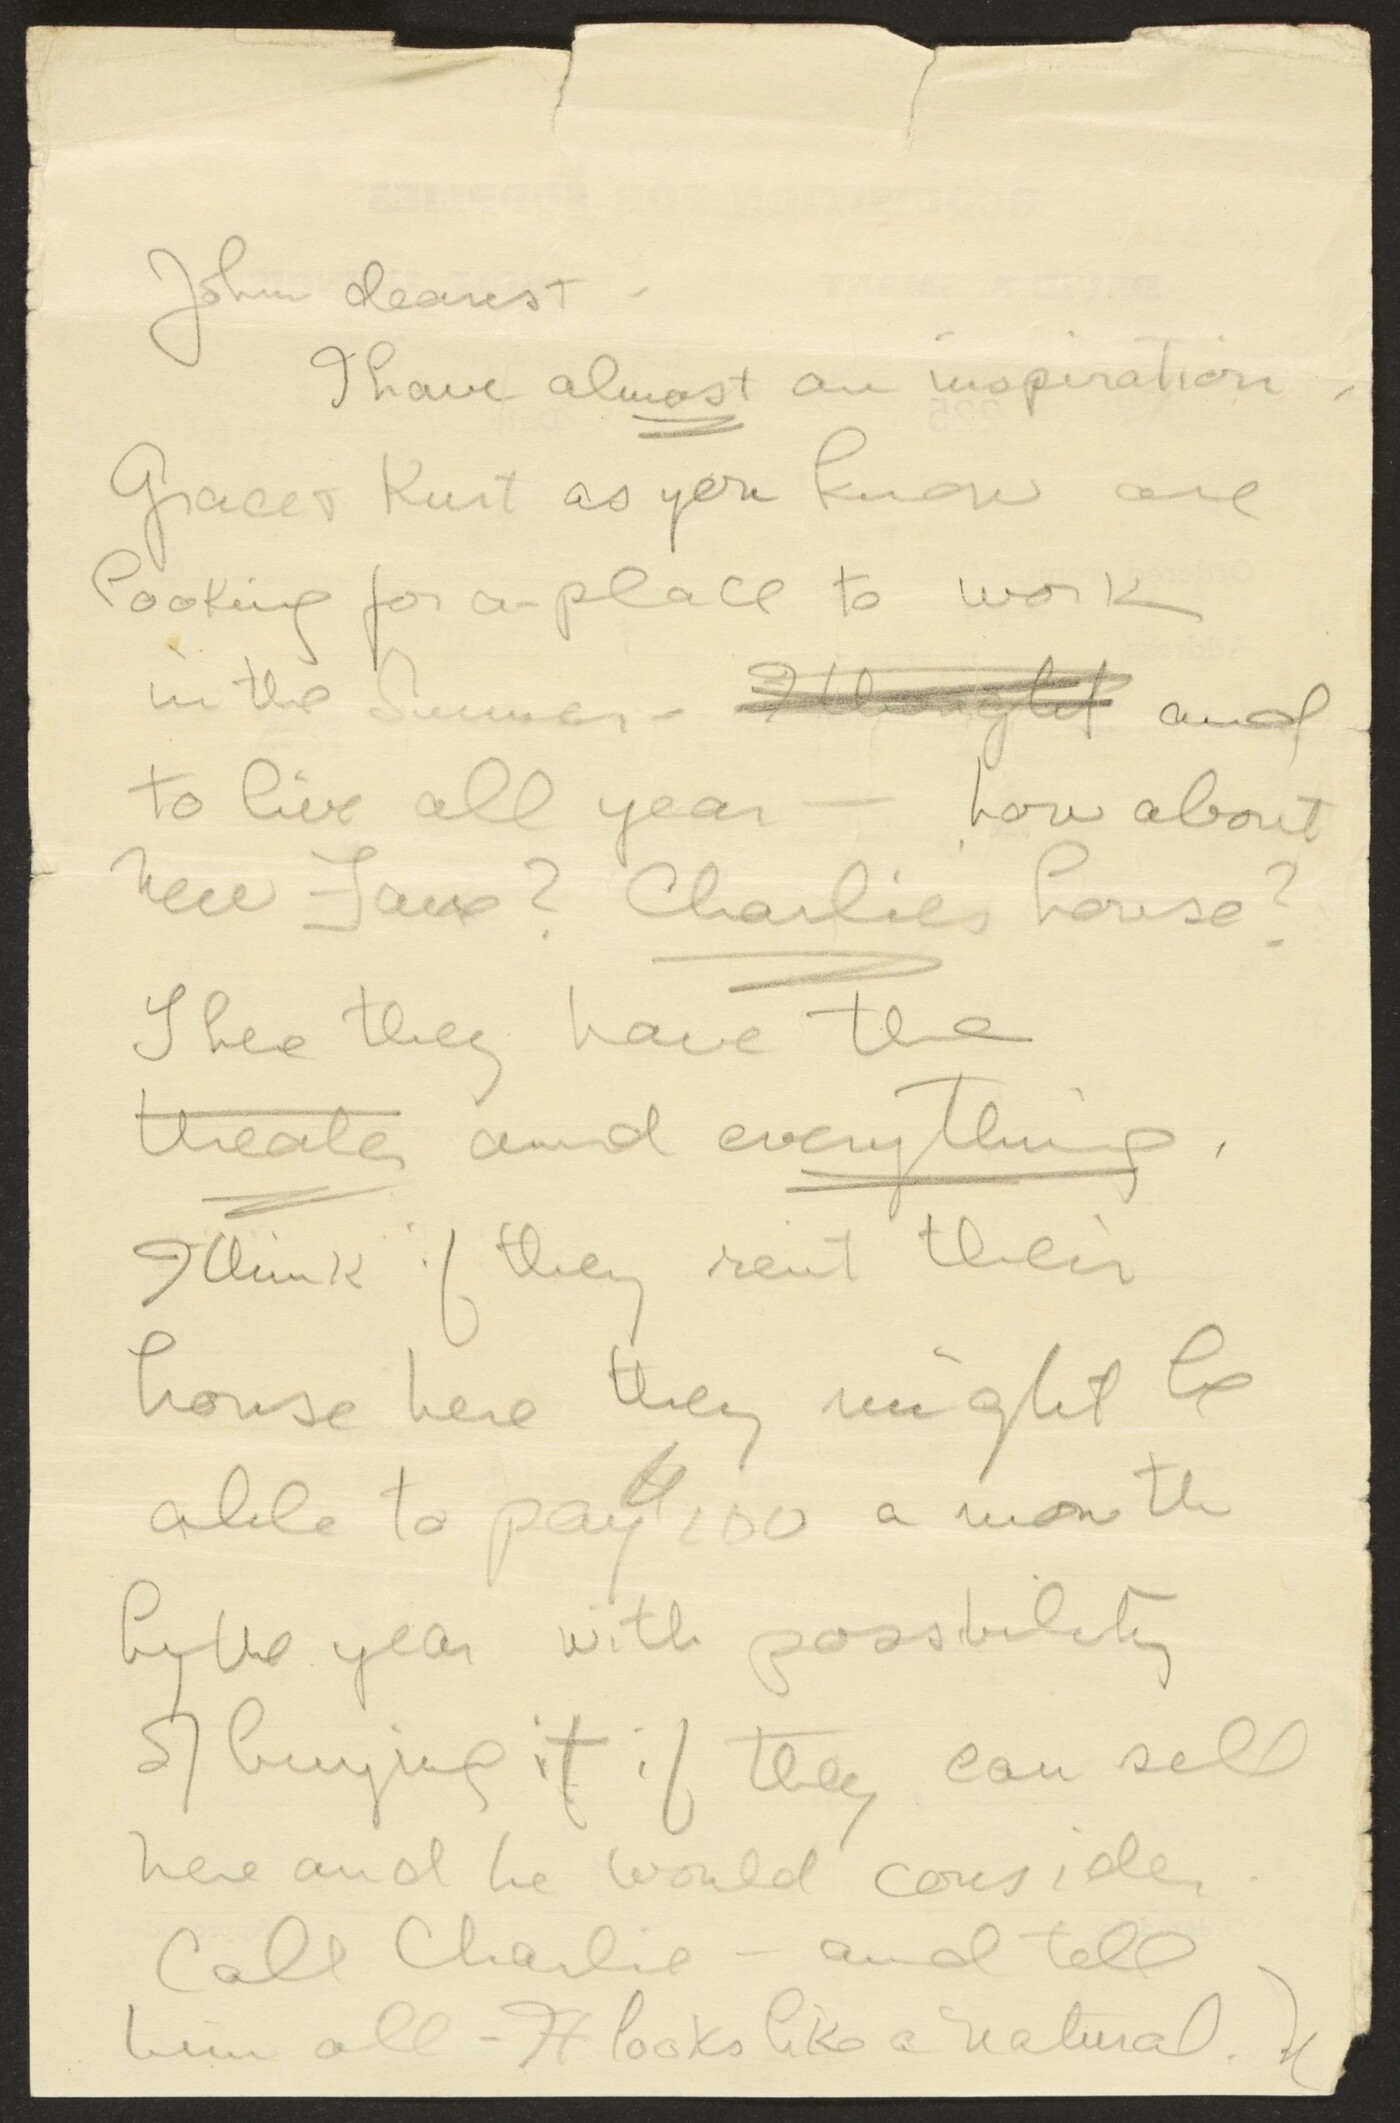 John dearest -
I have almost an inspiration -
Grace + Kurt as you know are
looking for a place to work
in the Summer - I thought and
to live all year — how about
New Fane? Charlies house?
There they have the
theater and everything.
I think if they rent their
house here they might be
able to pay 100 a month
by the year with possibility
of buying it if they can sell
here and he would consider.
Call Charlie - and tell
him all - It looks like a natural.